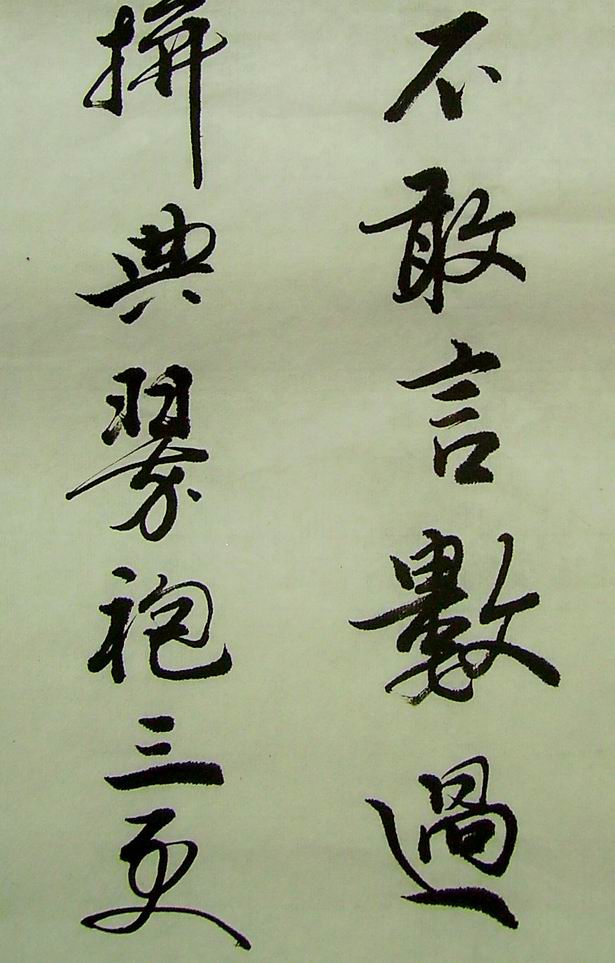 不敢言數過
拼典袍三更